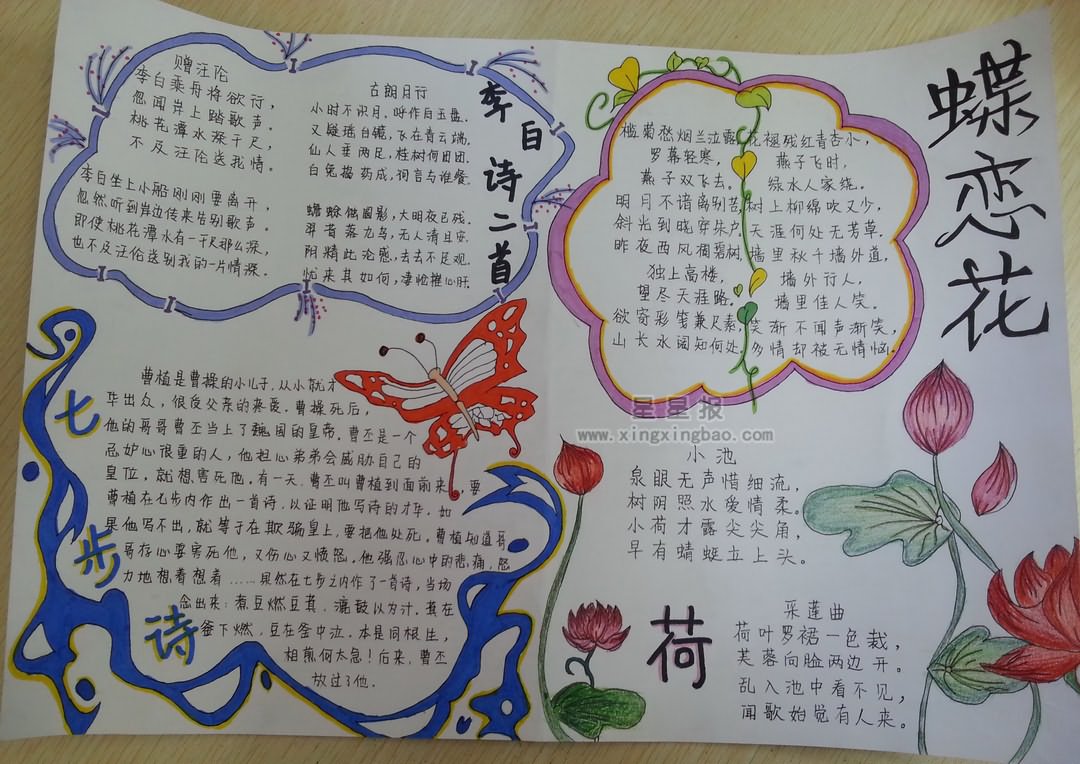 赠汪伦
李白乘舟将欲行，
忽闻岸上踏歌声。
桃花潭水深千尺，
不及汪伦送我情。
李白坐上小船刚刚要离开，
忽然听到岸边传来告别歌声。
即使桃花潭水有一千尺那么深，
也不及汪伦送别我的一片情深。
古朗月行
小时不识月，呼作白玉盘。
又疑瑶台镜，飞在青云端。
仙人垂两足，桂树何团团。
白兔捣药成，问言与谁餐。
蟾蜍蚀圆影，大明夜已残。
羿昔落九乌，天人清且安。
阴精此沦惑，去去不足观。
忧来其如何，凄怆摧心肝
李白诗二首
蝶恋花
槛菊愁烟兰泣露
罗幕轻寒，
燕子双飞去。
明月不谙离别苦
斜光到晓穿朱户
昨夜西风凋碧树
独上高楼，
望尽天涯路。
欲寄彩笺兼尺素
山长水阔知何处
花褪残红青杏小，
燕子飞时，
绿水人家绕。
树上柳绵吹又少，
天涯何处无芳草。
墙里秋千墙外道，
墙外行人，
墙里佳人笑。
笑渐不闻声渐笑，
多情却被无情恼。
七步诗
曹植是曹操的小儿子，从小就才
华出众，很受父亲的疼爱。曹操死后，
他的哥哥曹丕当上了魏国的皇帝。曹丕是一个
忌妒心很重的人，他担心弟弟会威胁自己的
皇位，就想害死他。有一天，曹丕叫曹植到面前来，要
曹植在七步内作出一首诗，以证明他写诗的才华。如
果他写不出，就等于在欺骗皇上，要把他处死。曹植知道哥
哥存心要害死他，又伤心又愤怒。他强忍心中的悲痛，努
力地想着想着……果然在七步之内作了一首诗，当场
念出来：煮豆燃豆萁，漉豉以为汁。萁在
釜下燃，豆在釜中泣。本是同根生，
相煎何太急！后来，曹丕
放过了他。
星星报
www.xingxingbao.com
小池
泉眼无声惜细流，
树阴照水爱情柔。
小荷才露尖尖角，
早有蜻蜓立上头。
荷
采莲曲
荷叶罗裙一色裁，
芙蓉向脸两边开。
乱入池中看不见，
闻歌始觉有人来。